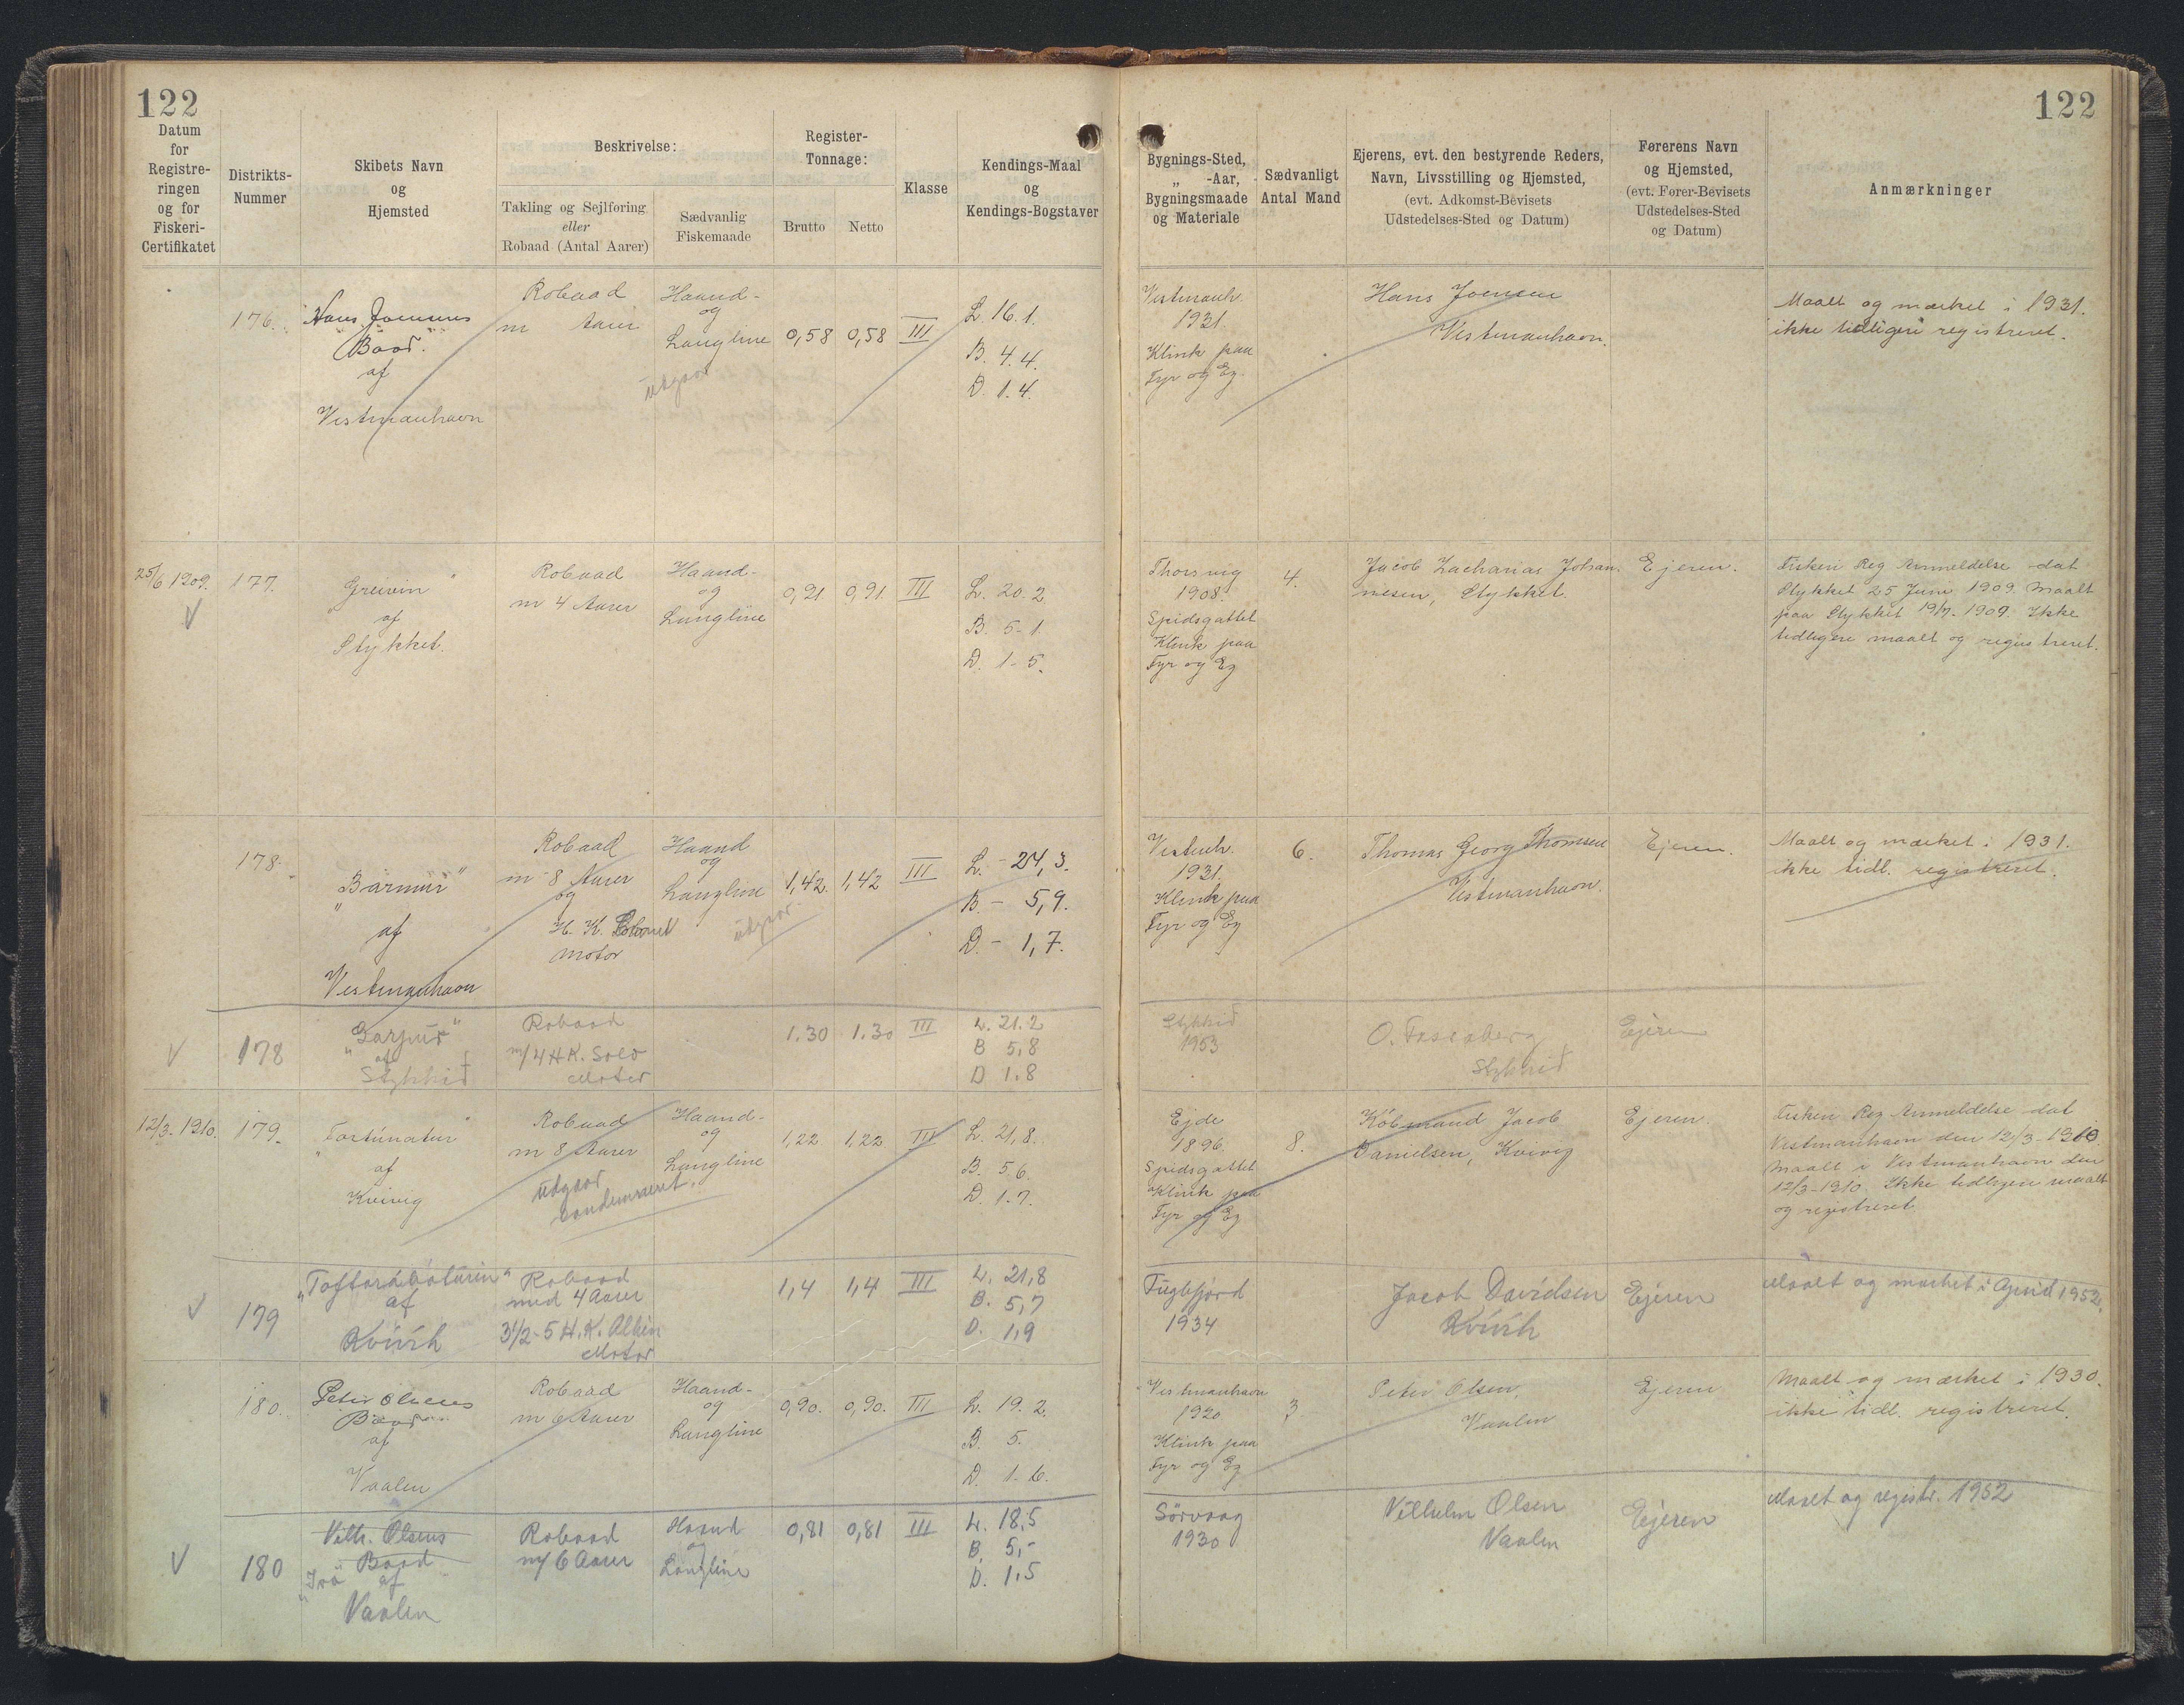 122
122
Datum
for
Registre-
ringen
og for
Fiskeri-
Certifikatet
Distrikts-
Nummer
Skibets Navn
og
Hjemsted
Beskrivelse:
Takling og Sejlføring
eller
Robaad (Antal Aarer)
Sædvanlig
Fiskemaade
Register-
Tonnage:
Brutto
Netto
Klasse
Kendings-Maal
og
Kendings-Bogstaver
Bygnings-Sted,
„ -Aar,
Bygningsmaade
og Materiale
Sædvanligt
Antal Mand
Ejerens, evt. den bestyrende Reders,
Navn, Livsstilling og Hjemsted,
(evt. Adkomst-Bevisets
Udstedelses-Sted og Datum)
Førerens Navn
og Hjemsted,
(evt. Fører-Bevisets
Udstedelses-Sted
og Datum)
Anmærkninger
176.
Hans Joensens
Baad.
af
Vestmanhavn
Robaad
m Aarer
Haand-
og
Langline
udgaar
0,58
0,58
III
L. 16.1.
B. 4.4.
D. 1.4.
Vestmanh.
1931.
Klink paa
Fyr og Eg.
Hans Joensen
Vestmanhavn.
Maalt og mærket i 1931.
ikke tidligere registreret.
25/6 1909.
V
177.
"Greivin"
af
Stykket.
Robaad
m 4 Aarer
Haand-
og
Langline
0,91
0,91
III
L. 20.2
B. 5-1.
D. 1-5.
Thorsvig
1908.
Spidsgattet
Klink paa
Fyr og Eg
4.
Jacob Zacharias Johan-
nesen, Stykket.
Ejeren.
Fiskeri Reg Anmeldelse dat
Stykket 25 Juni 1909. Maalt
paa Stykket 19/7. 1909. Ikke
tidligere maalt og registreret.
178.
"Bármur"
af
Vestmanhavn
Robaad
m 8 Aarer
og
H. K.
Motor
Haand
og
Langline
udgaar
1,42.
1,42
III
L. - 24,3.
B. - 5,9.
D. - 1,7.
Vestmh.
1931.
Klink paa
Fyr og Eg
6.
Thomas Georg Thomsen
Vestmanhavn.
Ejeren.
Maalt og mærket i 1931.
ikke tidl. registreret.
V
178
"Garpur"
af
Stykkið
Robaad
m/4 H.K. Solo
Motor
1.30
1.30
III
L. 21.2
B 5,8
D 1.8
Stykkið
1953
O. Fossaberg
Stykkið
Ejeren
12/3-1910.
179.
"Fortúnatur"
af
Kvivig
Robaad
m 8 Aarer
udgaar
condemneret.
Haand-
og
Langline
1,22
1,22
III
L. 21,8.
B. 5.6.
D. 1.7.
Ejde
1896.
Spidsgattet
Klink paa
Fyr og Eg
8.
Köbmand Jacob
Danielsen, Kvivig
Ejeren.
Fiskeri Reg Anmeldelse dat
Vestmanhavn den 12/3-1910.
Maalt i Vestmanhavn den
12/3-1910. Ikke tidligere maalt
og registreret.
V
179
"Toftarábáturin"
af
Kvívík
Robaad
med 4 Aarer
3½-5 H.K. Albin
Motor
1,4
1,4
III
L. 21,8
B. 5,7
D. 1,9
Fuglefjord
1934
Jacob Davidsen
Kvívík
Ejeren
Maalt og mærket i April 1952.
180.
Peter Olsens
Baad
af
Vaalen
Robaad
m 6 Aarer
Haand-
og
Langline
0,90.
0,90.
III
L. 19.2.
B. 5.
D. 1.6.
Vestmanhavn
1920
Klink paa
Fyr og Eg
3
Peter Olsen,
Vaalen
Ejeren
Maalt og mærket i 1930.
ikke tidl. registreret.
V
180
Vilh. Olsens
Baad
af
Vaalen
Robaad
m/6 Aarer
Haand
og
Langline
0,81
0,81
III
L. 18,5
B, 5,-
D. 1,5
Sörvaag
1930
Vilhelm Olsen
Vaalen
Ejeren
Maalt og registr. 1952